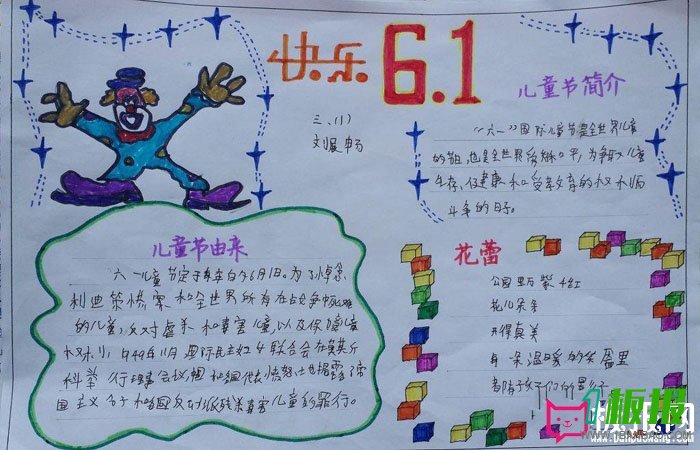 快乐 6.1
三、(1)
刘展畅
儿童节简介
"六一"国际儿童节是全世界儿童
的节日,也是全世界 为争取儿童
生存、健康和受教育的权
斗争的日子。
儿童节由来
六一儿童节定于每年的6月1日。为了悼念
利迪策惨案和全世界所有在战争中死难
的儿童,反对虐杀和毒害儿童,以及保障儿童
权利,1949年11月国际民主妇女联合会在莫斯
科举行理事会议,
国主义分子和各国反动派残杀毒害儿童的罪行。
花蕾
公园里万紫千红
花儿朵朵
开得真美
每一朵温暖的笑靥里
都有孩子们的
板报